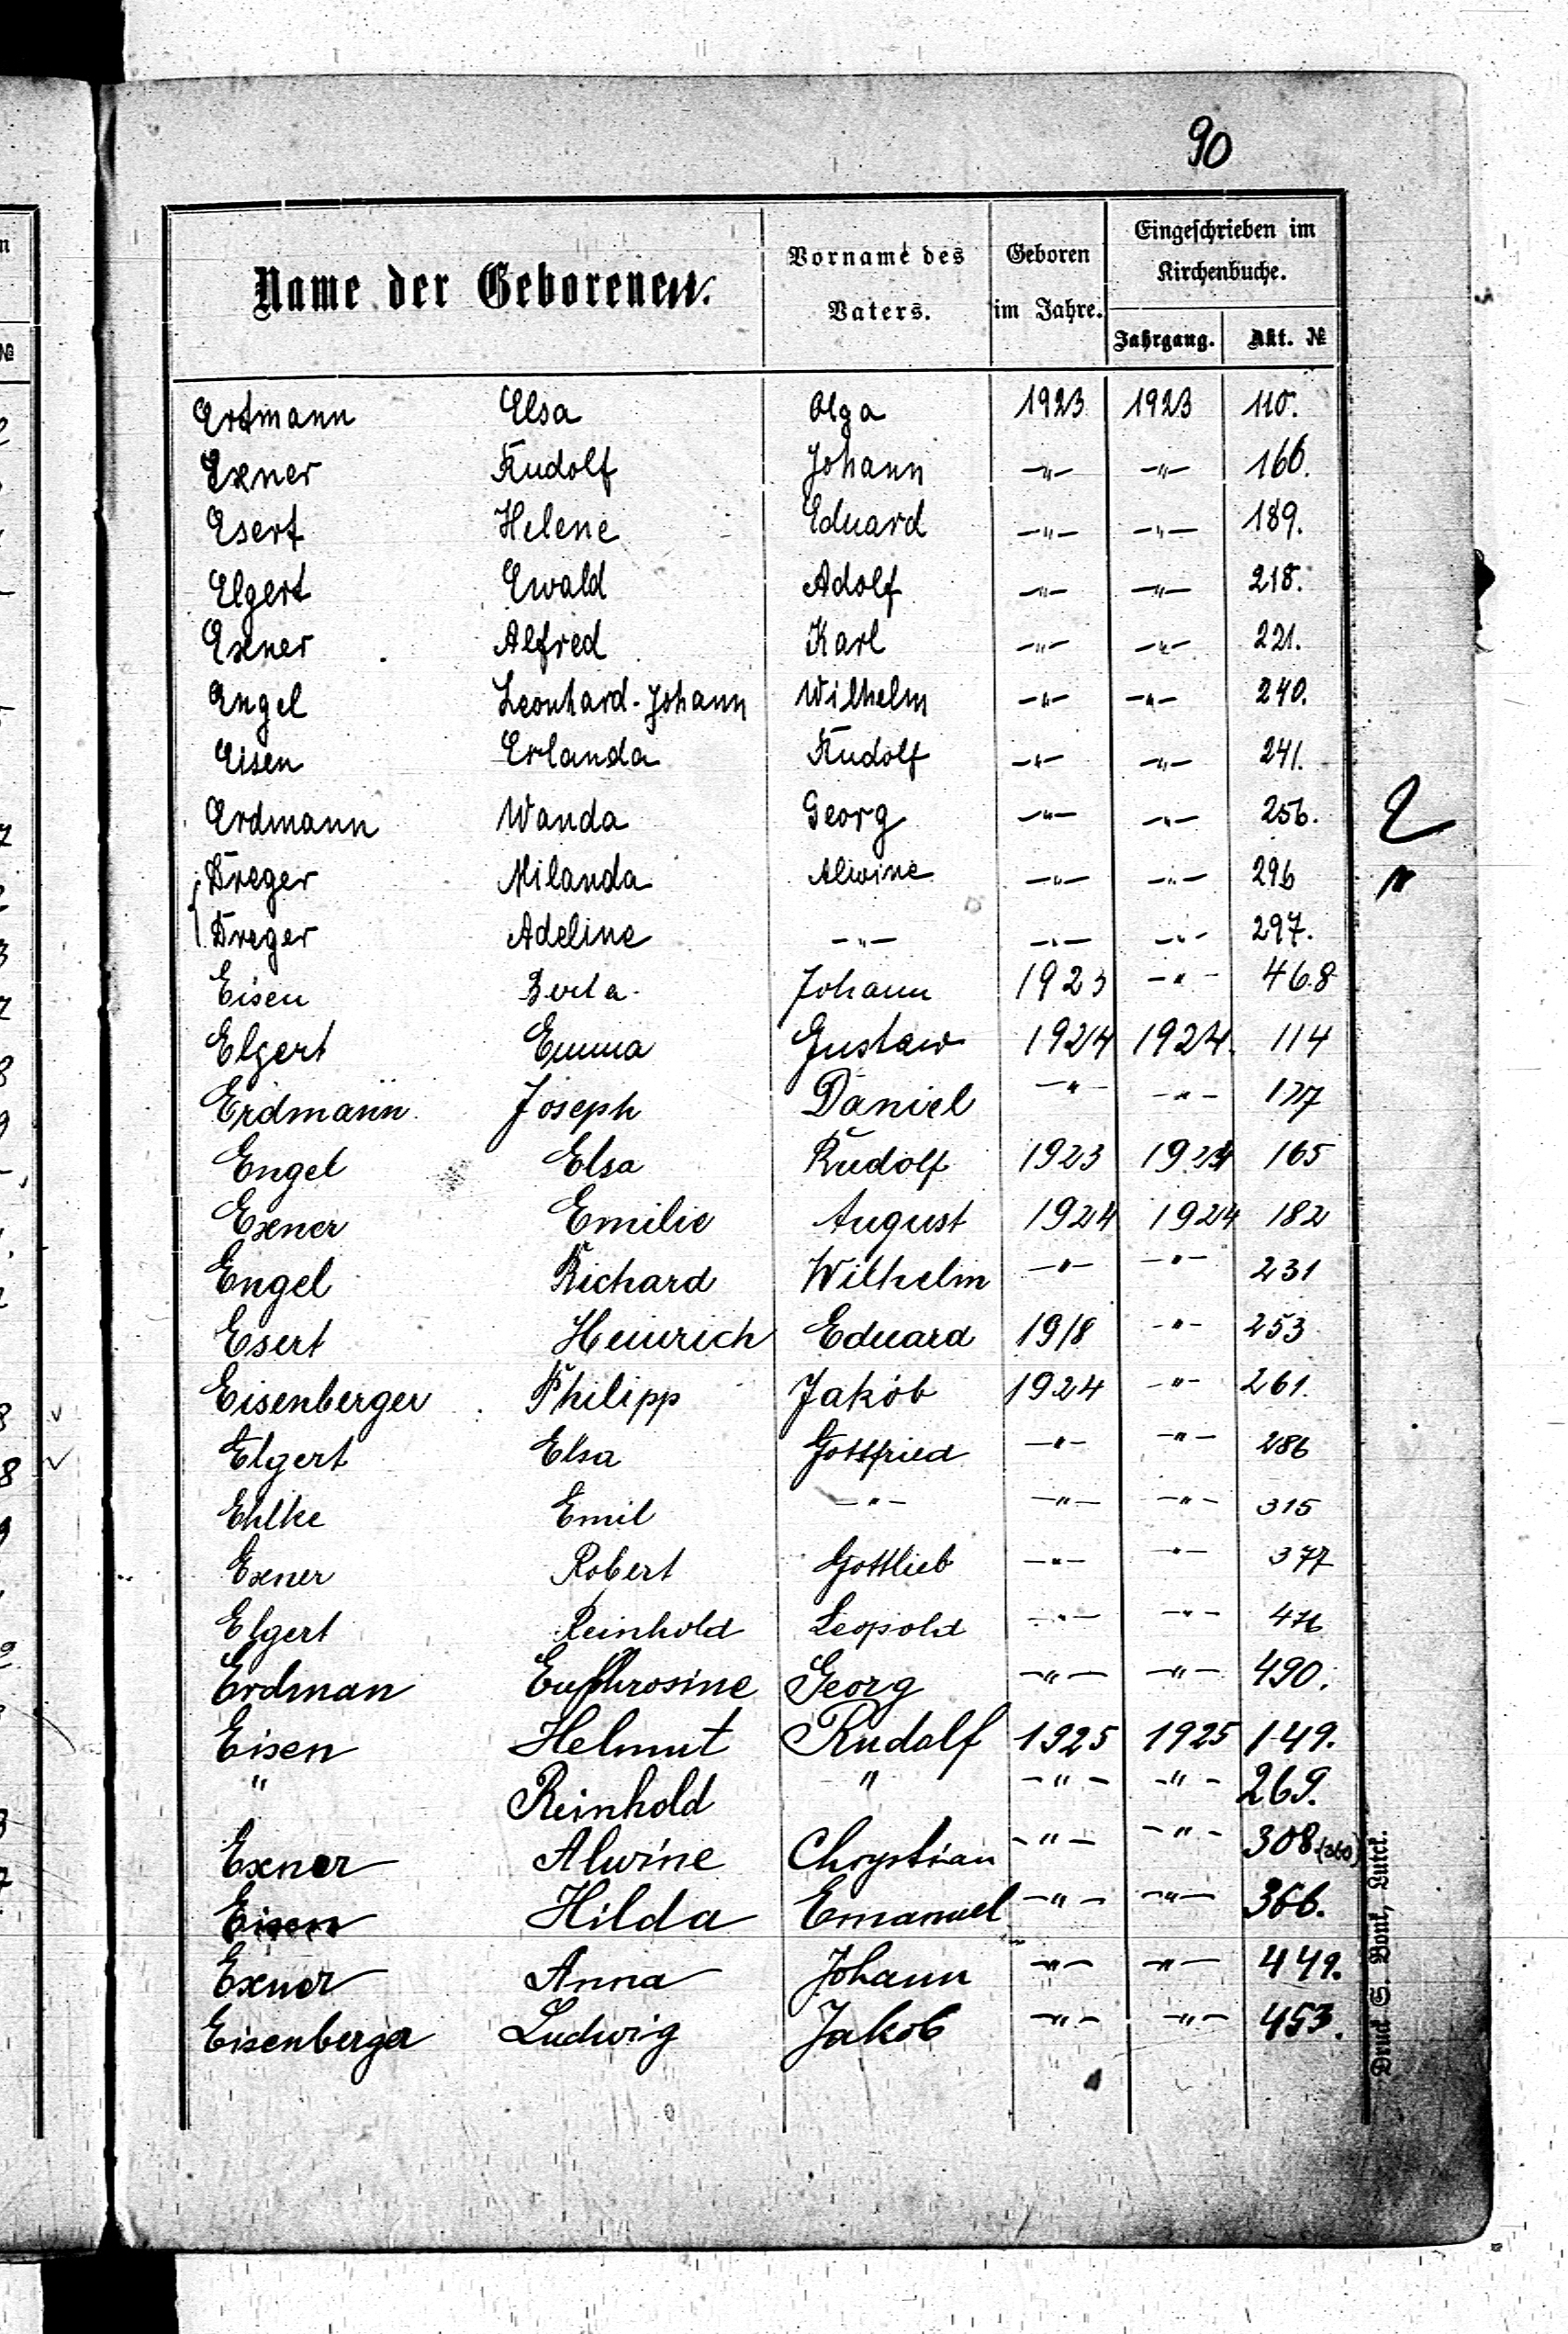 90
Name der Geborenen. Vorname des Vaters. Geboren im Jahre. Eingeschrieben im Kirchenbuche. Jahrgang. Akt. №
Ertmann Elsa Olga 1923 1923 110.
Exner Rudolf Johann -"- -"- 160.
Esert Helene Eduard -"- -"- 189.
Elgert Ewald Adolf -"- -"- 218.
Exner Alfred Karl -"- -"- 221.
Engel Leonhard-Johann Wilhelm -"- -"- 240.
Eisen Erlanda Rudolf -"- -"- 241.
Erdmann Wanda Georg -"- -"- 256.
Dreger Milanda Alwine -"- -"- 296
Dreger Adeline -"- -"- -"- 297.
Eisen Berta Johann 1923 -"- 468
Elgert Emma Gustaw 1924 1924. 114
Erdmann Joseph Daniel -"- -"-
Engel Elsa Rudolf 1923 1924 165
Exner Emilie August 1924 1924 182
Engel Richard Wilhelm -"- -"- 231
Esert Heinrich Eduard 1918 -"- 253
Eisenberger Philipp Jakob 1924 -"- 261.
Elgert Elsa Gottfried -"- -"- 286
Ehlke Emil -"- -"- -"- 315
Exner Robert Gottlieb -"- -"- 377
Elgert Reinhold Leopold -"- -"- 476
Erdman Eufhrosine Georg -"- -"- 490.
Eisen Helmut Rudolf 1925 1925 149.
" Reinhold " -"- -"- 269.
Exner Alwine Chrystian -"- -"- 308.
Eisen Hilda Emanuel -"- -"- 366.
Exner Anna Johann -"- -"- 449.
Eisenberger Ludwig Jakob -"- -"- 453.
Druck S. Bonk, Lutck.